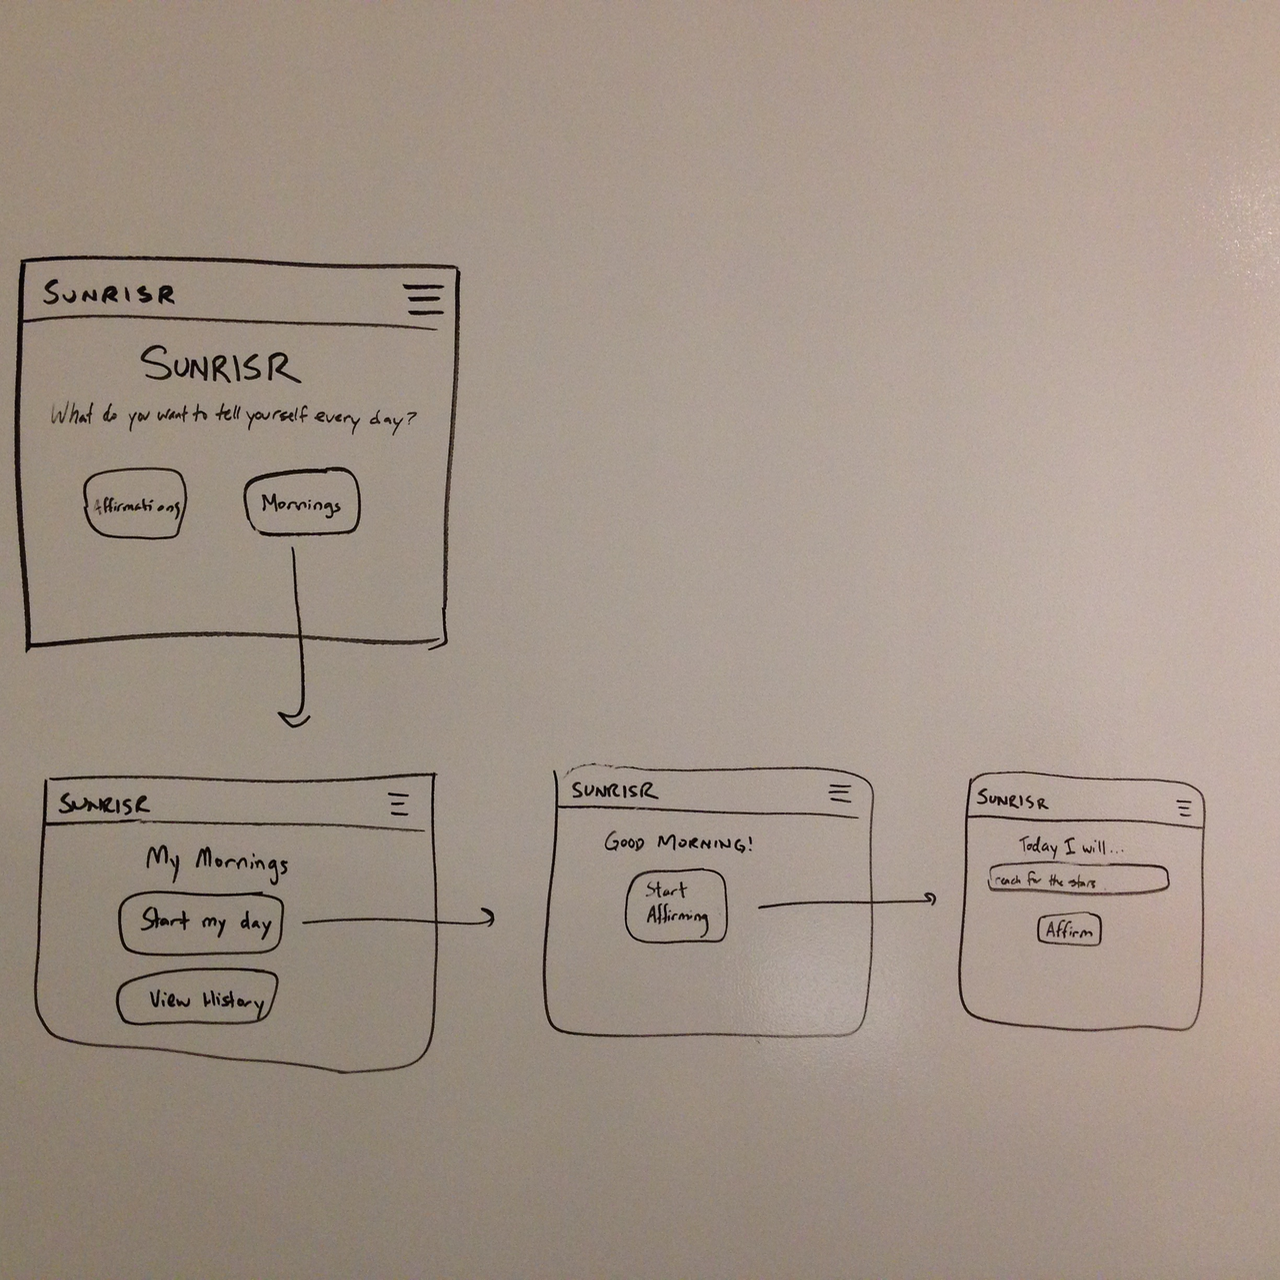 SUNRISR
SUNRISR
What do you want to tell yourself every day?
Affirmations
Mornings
SUNRISR
My Mornings
Start my day
View History
SUNRISR
GOOD MORNING!
Start
Affirming
SUNRISR
Today I will...
reach for the stars
Affirm